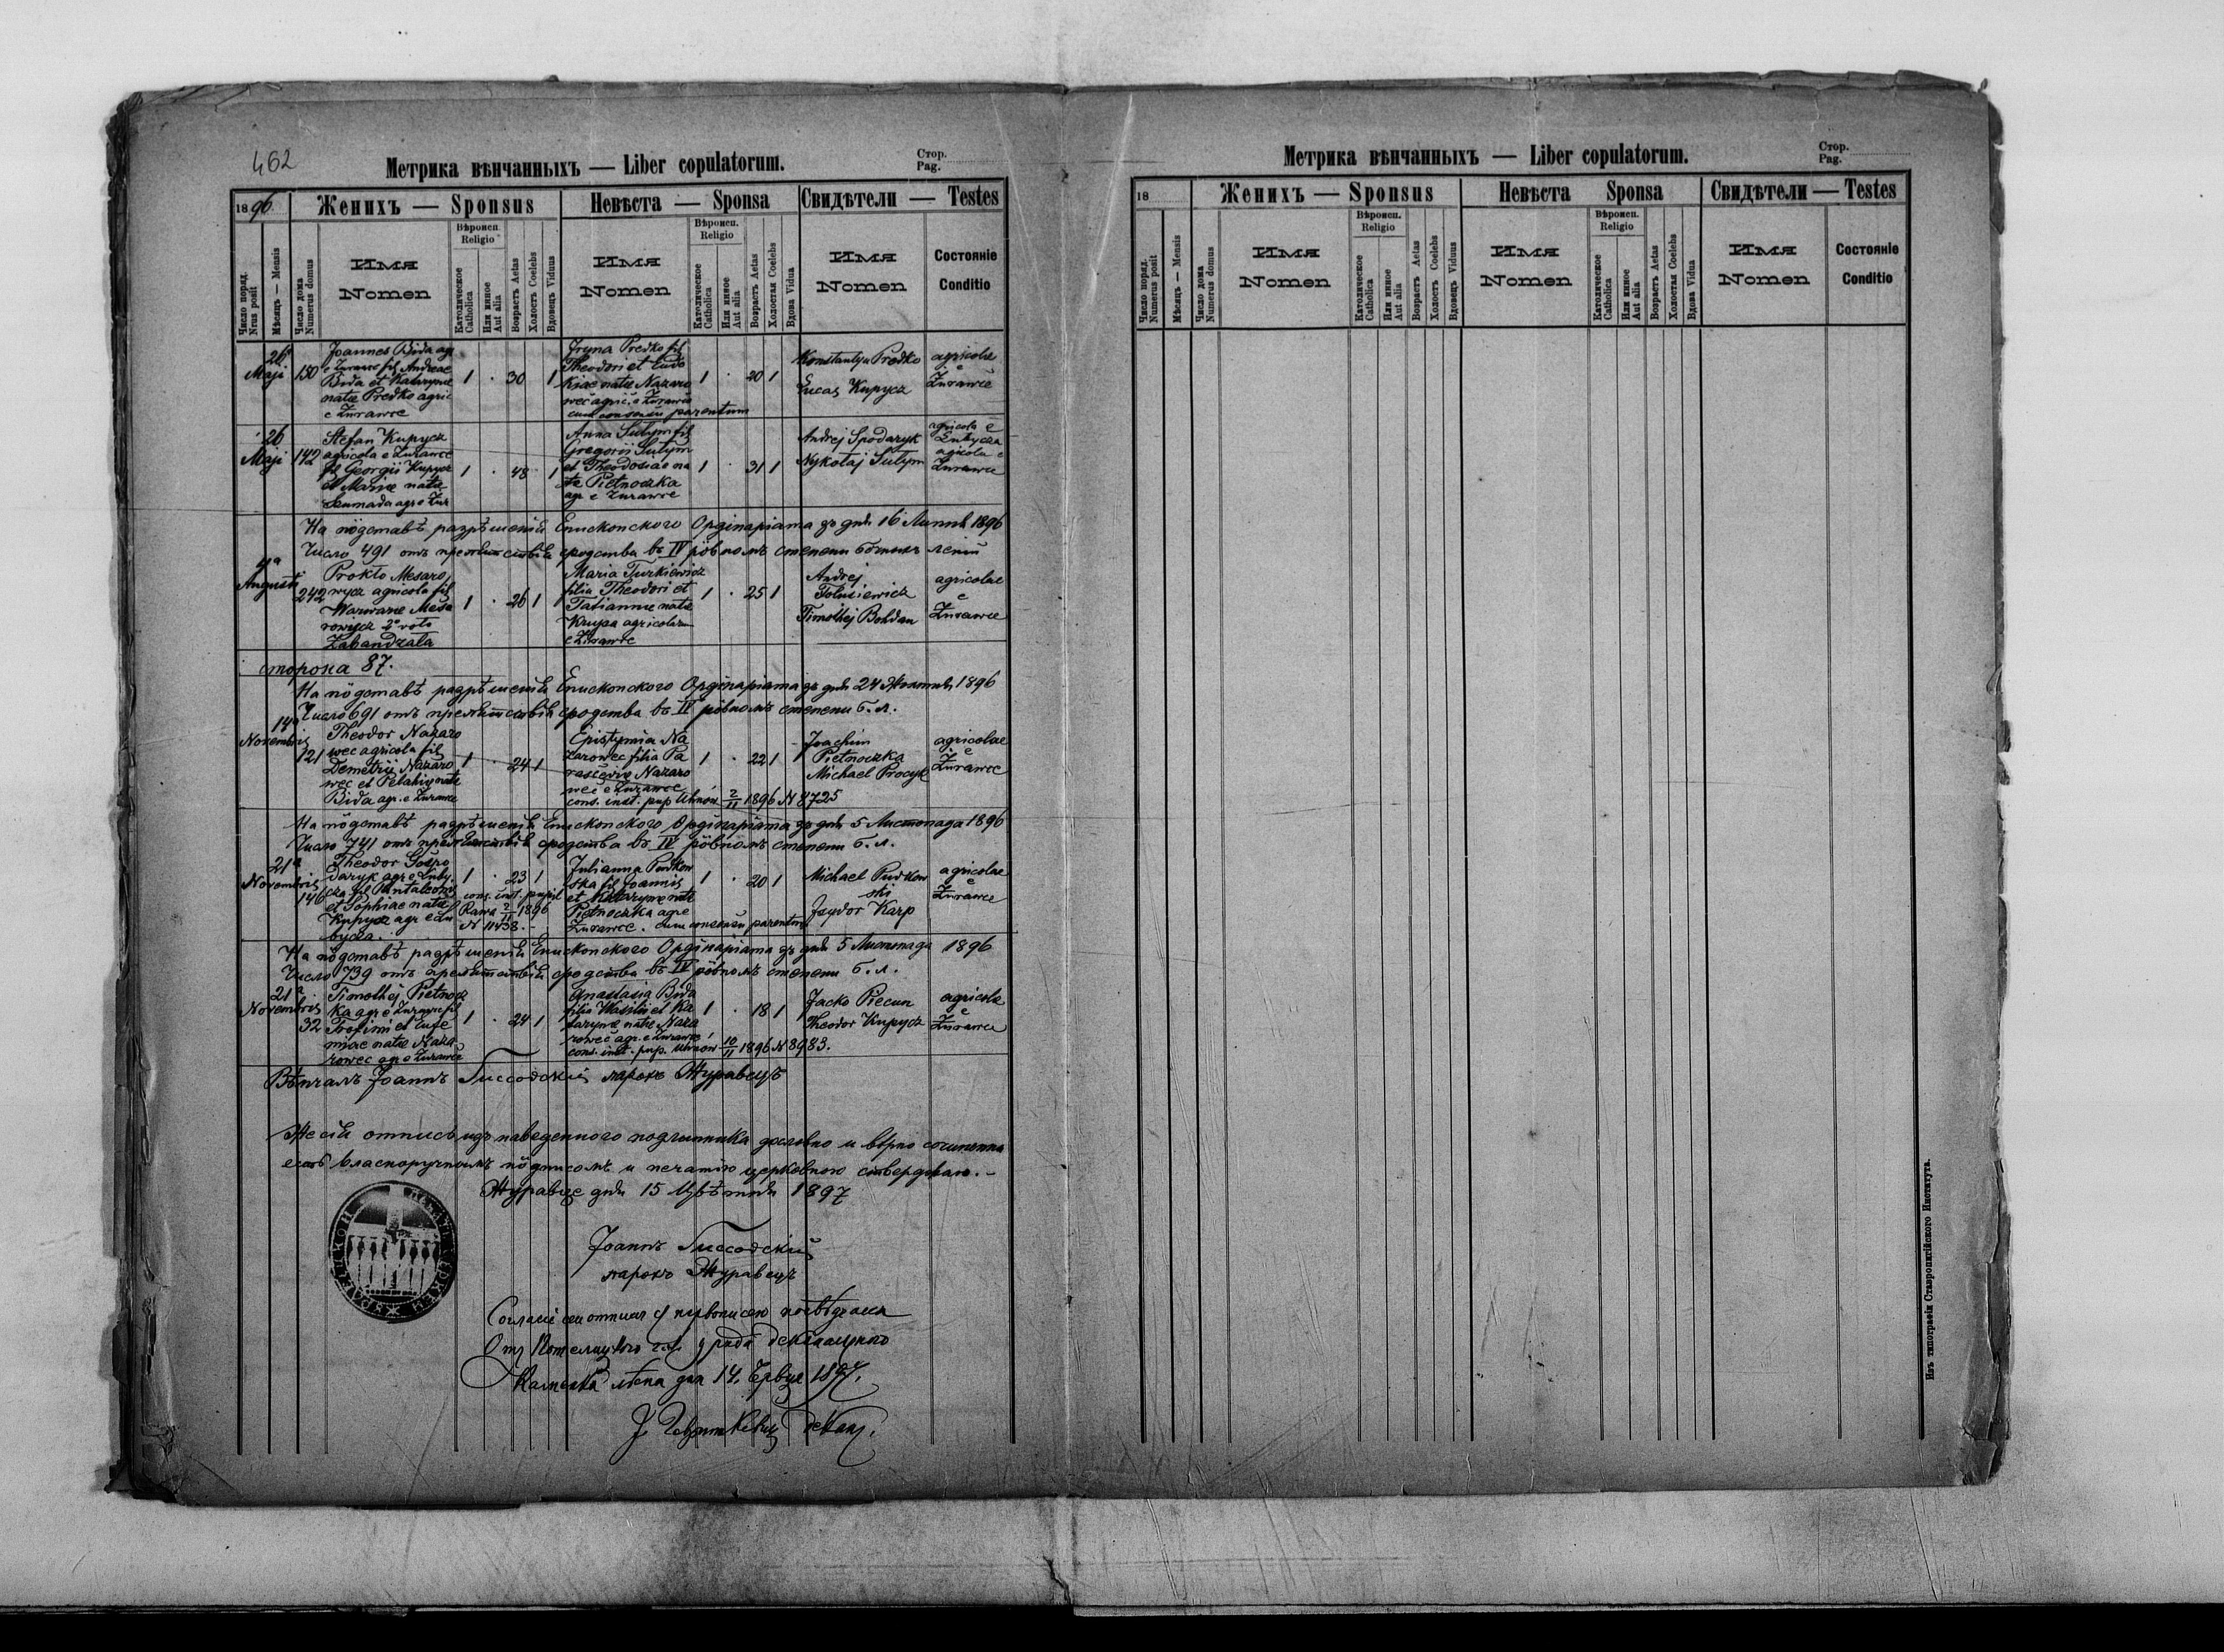 462
Метрика вѣнчанныхъ — Liber copulatorum.
Стор.
Pag.
1896.
Женихъ — Sponsus
Невѣста — Sponsa
Свидѣтели — Testes
Число поряд.
Nrus posit
Мѣсяцъ — Mensis
Число дома
Numerus domus
Имя
Nomen
Вѣроисп.
Religio
Католическое
Catholica
Или инное
Aut alia
Возрастъ Aetas
Холостъ Coelebs
Вдовецъ Viduus
Имя
Nomen
Вѣроисп.
Religio
Католическое
Catholica
Или инное
Aut alia
Возрастъ Aetas
Холостая Coelebs
Вдова Vidua
Имя
Nomen
Состояніе
Conditio
26
Maji
150
Joannes Bida agr
e Żurawce fil Andreae
Bida et Katarynae
natae Predko agric
e Żurawce
1 . 30 1
Iryna Predko fil
Theodori et Eudo
kiae natae Nazaro
wec agric. e Żurawce
cum consensu parentum
1 . 20 1
Konstantyn Predko
Lucas Kupycz
agricolae
e
Żurawce
26
Maji
142
Stefan Kupycz
agricola e Żurawce
fil Georgii Kupycz
et Mariae natae
Szumada agr e Żur
1 . 48 1
Anna Sułym fil
Gregorii Sułym
et Theodosiae na
tae Pietnoczka
agr e Żurawce
1 . 31 1
Andrej Spodaryk
Nykołaj Sułym
agricola e
Lubycza
agricola e
Żurawce
На пôдставѣ разрѣшенія Епископского Ординаріата зъ дня 16 Липня 1896
Число 491 отъ препятствія сродства въ IV рôвномъ степени бочныхъ лєній
4ª
Augusti
242
Prokło Mesaro
wycz agricola fil
Warwarae Mesa
rowycz 2º voto
Zabandzała
1 . 26 1
Maria Turkiewicz
filia Theodori et
Tatiannae natae
Krupa agricolarum
e Żurawce
1 . 25 1
Andrej
Tołusiewicz
Timothej Bohdan
agricolae
e
Żurawce
сторона 87.
На пôдставѣ разрѣшенія Епископского Ординаріата зъ дня 24 Жовтня 1896
Число 691 отъ препятствія сродства въ IV рôвномъ степени б. л.
14ª
Novembris
121
Theodor Nazaro
wec agricola fil
Demetrii Nazaro
wec et Pelahiae natae
Bida agr. e Żurawce
1 . 24 1
Epistymia Na
zarowec filia Pa
rascewiae Nazaro
wec e Żurawce
cons. inst. pup Uhnow 2/11 1896 N 8725
1 . 22 1
Joachim
Pietnoczka
Michael Procyk
agricolae
e
Żurawce
На пôдставѣ разрѣшенія Епископского Ординаріата зъ дня 5 Листопада 1896
Число 741 отъ препятствія сродства въ IV рôвномъ степени б. л.
21ª
Novembris
146
Theodor Gospo
daryk agr e Luby
cza fil Pantaleoni
et Sophiae natae
Kupycz agr e Lu
bycza.
1 . 23 1
cons. inst. pupil
Rawa 2/11 1896
N 11438.
Julianna Pudkow
ska fil Joannis
et Katarynae natae
Pietnoczka agr e
Żurawce. cum consensu parentum
1 . 20 1
Michael Pudkow
ski
Isydor Karp
agricolae
e
Żurawce
На пôдставѣ разрѣшенія Епископского Ординаріата зъ дня 5 Листопада 1896
Число 739 отъ препятствія сродства въ IV рôвномъ степени б. л.
21ª
Novembris
32
Timothej Pietnocz
ka agr e Żurawce fil
Trofimi et Eufe
miae natae Naza
rowec agr e Żurawce
1 . 24 1
Anastasia Bida
filia Wasilii et Ka
tarynae natae Naza
rowec agr. e Żurawce
cons. inst. pup. Uhnow 10/11 1896 N 8983.
1 . 18 1
Jacko Piecun
Theodor Kupycz
agricolae
e
Żurawce
Вѣнчалъ Іоаннъ парохъ Журавецъ
Же сій отписъ изъ наведенного подлинника дословно и вѣрно сочиненна
есть власноручнымъ пôдписомъ и печатію церковною ствержаю. –
Журавце дня 15 Цвѣтня 1897
Іоаннъ
парохъ Журавецъ
Каменка дня 14. Червця 1897.
Деканъ.
Метрика вѣнчанныхъ — Liber copulatorum.
Стор.
Pag.
18
Женихъ — Sponsus
Невѣста Sponsa
Свидѣтели — Testes
Число поряд.
Numerus posit
Мѣсяцъ — Mensis
Число дома
Numerus domus
Имя
Nomen
Вѣроисп.
Religio
Католическое
Catholica
Или инное
Aut alia
Возрастъ Aetas
Холостъ Coelebs
Вдовецъ Viduus
Имя
Nomen
Вѣроисп.
Religio
Католическое
Catholica
Или инное
Aut alia
Возрастъ Aetas
Холостая Coelebs
Вдова Vidua
Имя
Nomen
Состояніе
Conditio
Изъ типографіи Ставропигійского Института.